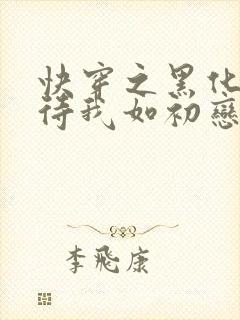 快穿之黑化
待我如初戀
李飛康